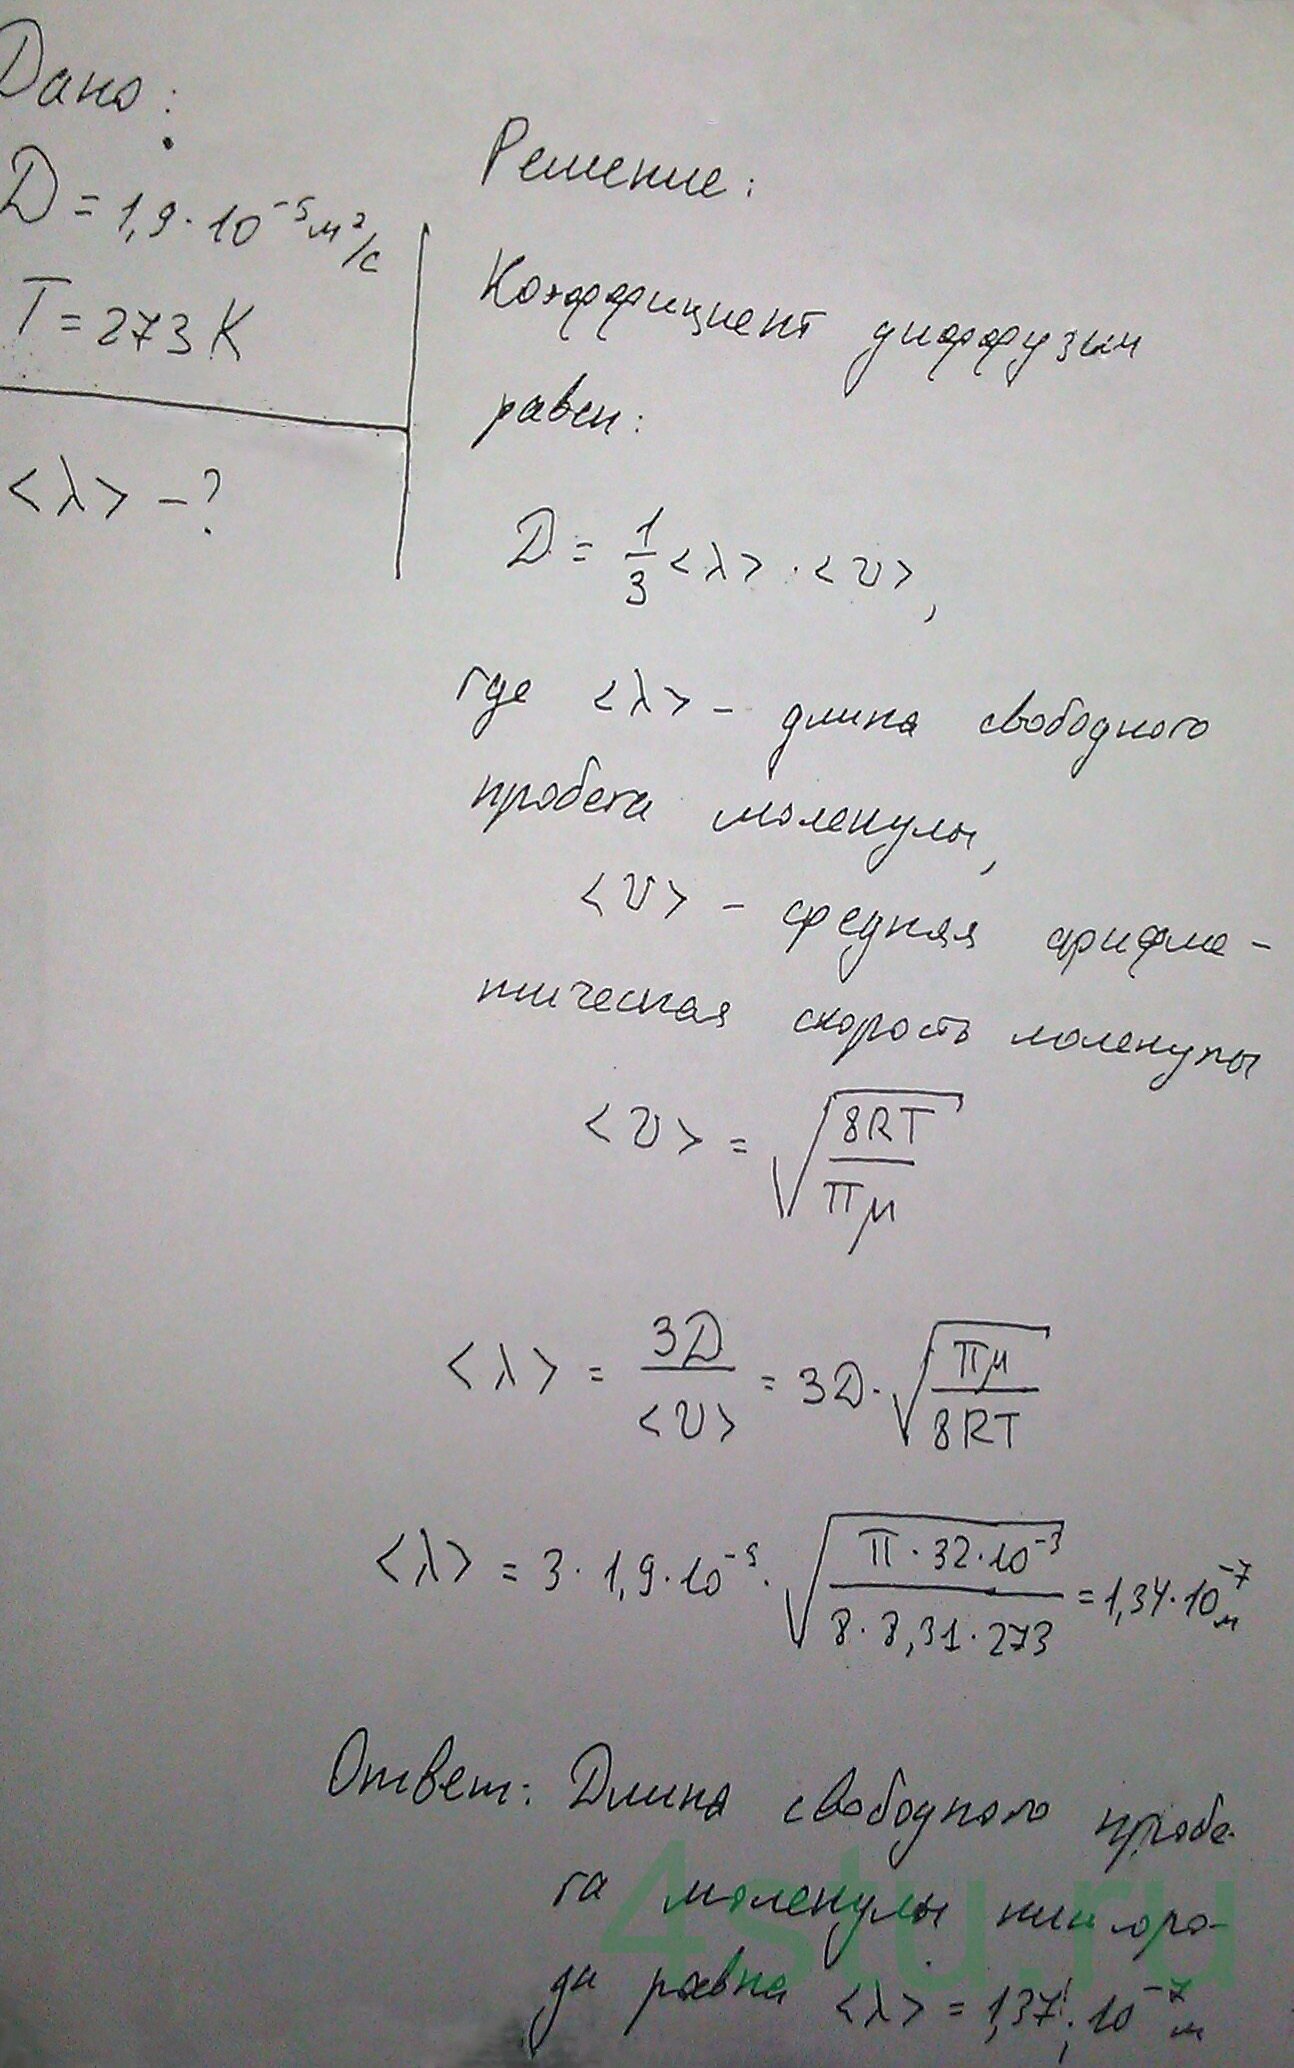 Дано:
D = 1,9·10⁻⁵ м²/с
T = 273 K
<λ> – ?
Решение:
Коэффициент диффузии
равен:
D = 1/3 <λ> · <v>,
где <λ> – длина свободного
пробега молекулы,
<v> – средняя арифме-
тическая скорость молекулы
<v> = √(8RT/πμ)
<λ> = 3D/<v> = 3D · √(πμ/8RT)
<λ> = 3·1,9·10⁻⁵ · √(π·32·10⁻³/8·8,31·273) = 1,34·10⁻⁷ м
Ответ: Длина свободного пробе-
га молекулы кислоро-
да равна <λ> = 1,37·10⁻⁷ м
4stu.ru